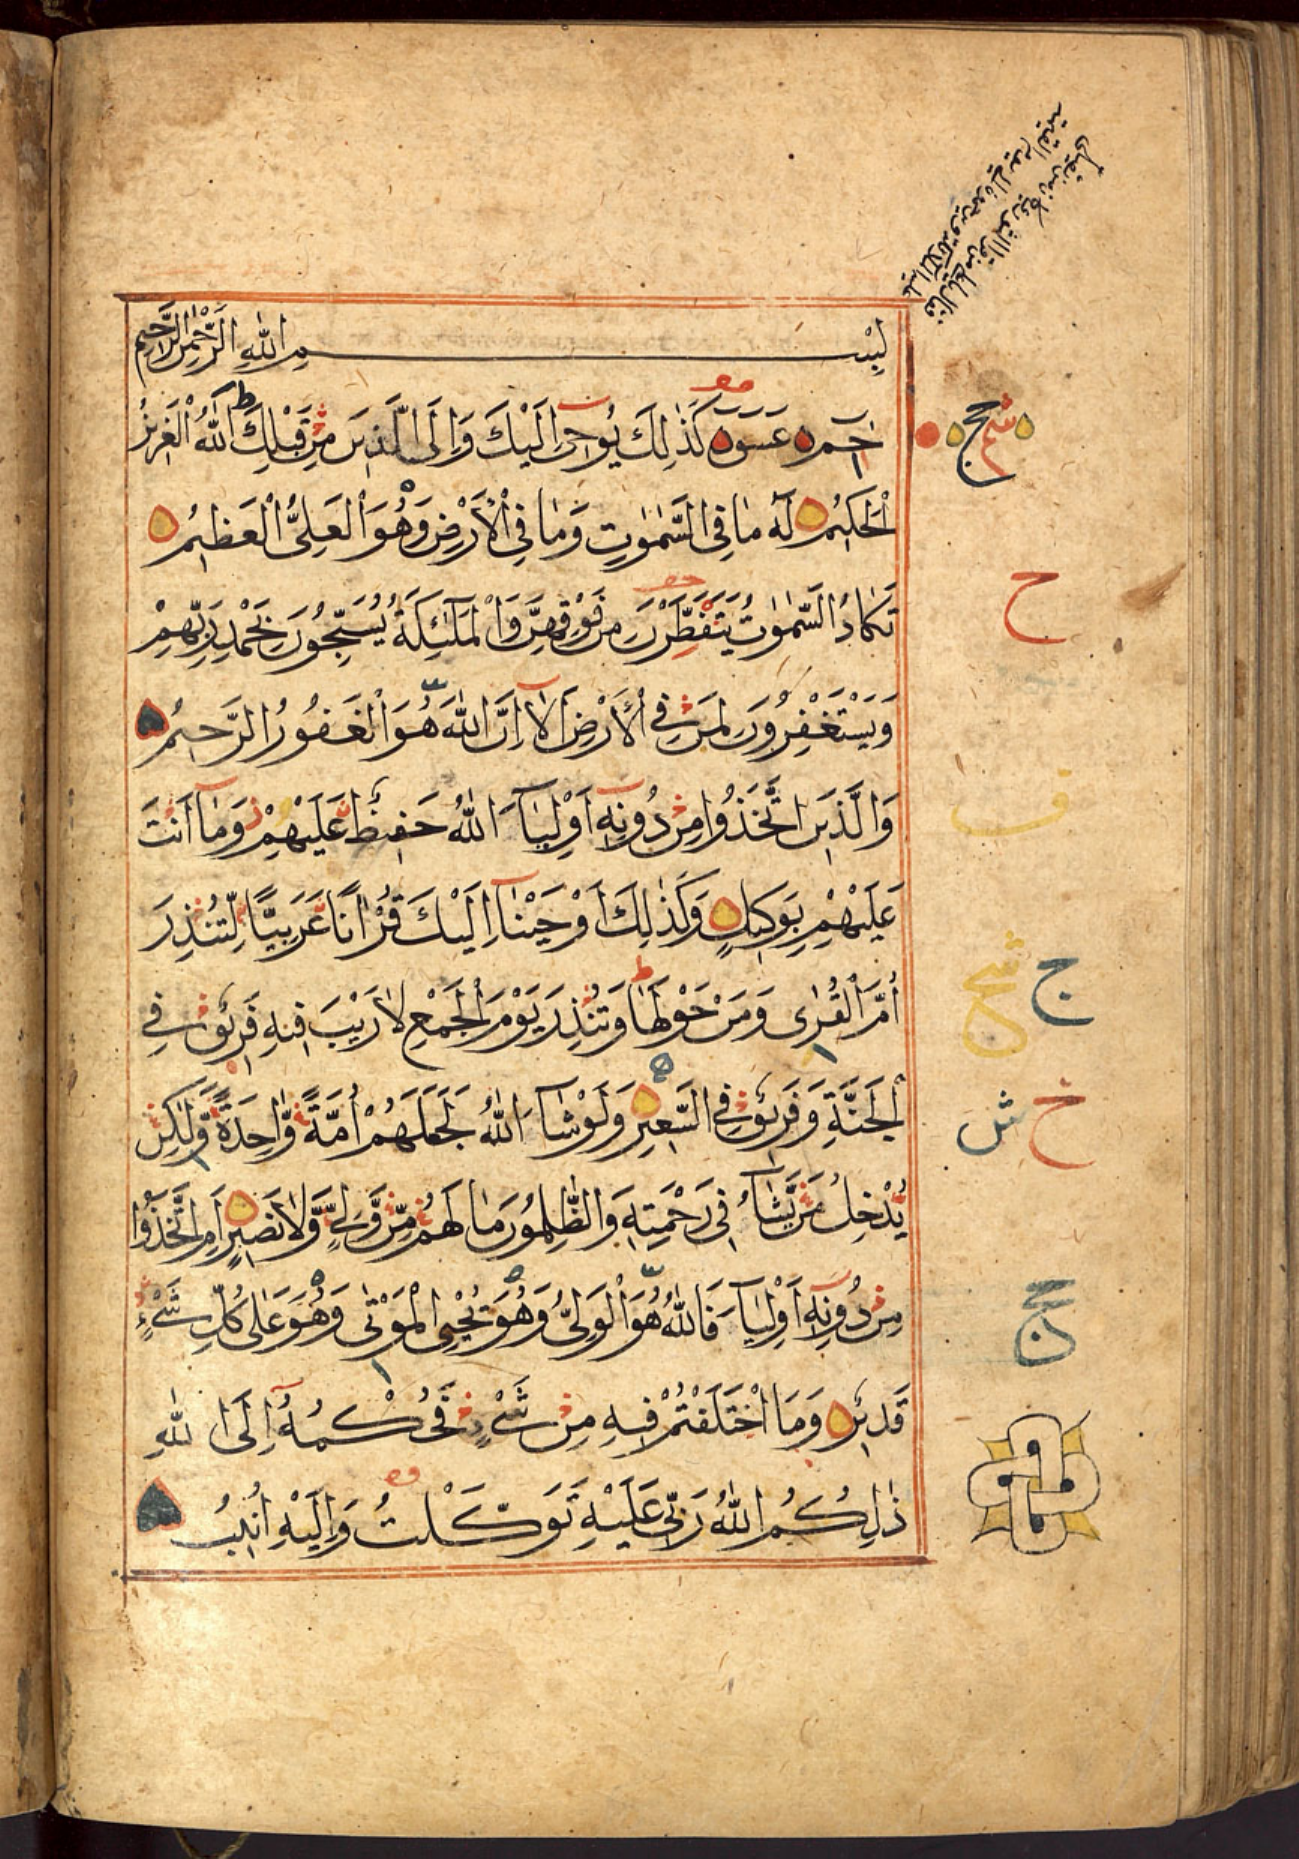 بِسْمِ اللهِ الرَّحْمٰنِ الرَّحِيمِ
حٓمٓ عٓسٓقٓ كَذٰلِكَ يُوحِى اِلَيْكَ وَاِلَى الَّذِينَ مِنْ قَبْلِكَ اللهُ الْعَزِيزُ
الْحَكِيمُ لَهُ مَا فِى السَّمٰوٰتِ وَمَا فِى الْاَرْضِ وَهُوَ الْعَلِىُّ الْعَظِيمُ
تَكَادُ السَّمٰوٰتُ يَتَفَطَّرْنَ مِنْ فَوْقِهِنَّ وَالْمَلٰٓئِكَةُ يُسَبِّحُونَ بِحَمْدِ رَبِّهِمْ
وَيَسْتَغْفِرُونَ لِمَنْ فِى الْاَرْضِ اَلَآ اِنَّ اللهَ هُوَ الْغَفُورُ الرَّحِيمُ
وَالَّذِينَ اتَّخَذُوا مِنْ دُونِهٓ اَوْلِيَآءَ اللهُ حَفِيظٌ عَلَيْهِمْ وَمَآ اَنْتَ
عَلَيْهِمْ بِوَكِيلٍ وَكَذٰلِكَ اَوْحَيْنَآ اِلَيْكَ قُرْاٰنًا عَرَبِيًّا لِّتُنْذِرَ
اُمَّ الْقُرٰى وَمَنْ حَوْلَهَا وَتُنْذِرَ يَوْمَ الْجَمْعِ لَا رَيْبَ فِيهِ فَرِيقٌ فِى
الْجَنَّةِ وَفَرِيقٌ فِى السَّعِيرِ وَلَوْ شَآءَ اللهُ لَجَعَلَهُمْ اُمَّةً وَّاحِدَةً وَّلٰكِنْ
يُدْخِلُ مَنْ يَّشَآءُ فِى رَحْمَتِهِ وَالظّٰلِمُونَ مَا لَهُمْ مِّنْ وَّلِىٍّ وَّلَا نَصِيرٍ اَمِ اتَّخَذُوا
مِنْ دُونِهٓ اَوْلِيَآءَ فَاللهُ هُوَ الْوَلِىُّ وَهُوَ يُحْيِى الْمَوْتٰى وَهُوَ عَلٰى كُلِّ شَىْءٍ
قَدِيرٌ وَمَا اخْتَلَفْتُمْ فِيهِ مِنْ شَىْءٍ فَحُكْمُهُٓ اِلَى اللهِ
ذٰلِكُمُ اللهُ رَبِّى عَلَيْهِ تَوَكَّلْتُ وَاِلَيْهِ اُنِيبُ
ح
ف
ج
خ